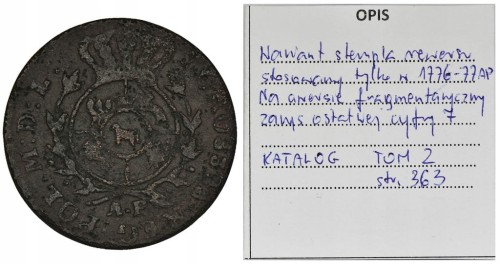 POL. M. D. L.
A.P.
OPIS
Wariant stempla rewersu
stosowany tylko w 1776-77 AP
Na awersie fragmentaryczny
zarys ostatniej cyfry 7
KATALOG TOM 2
str. 363